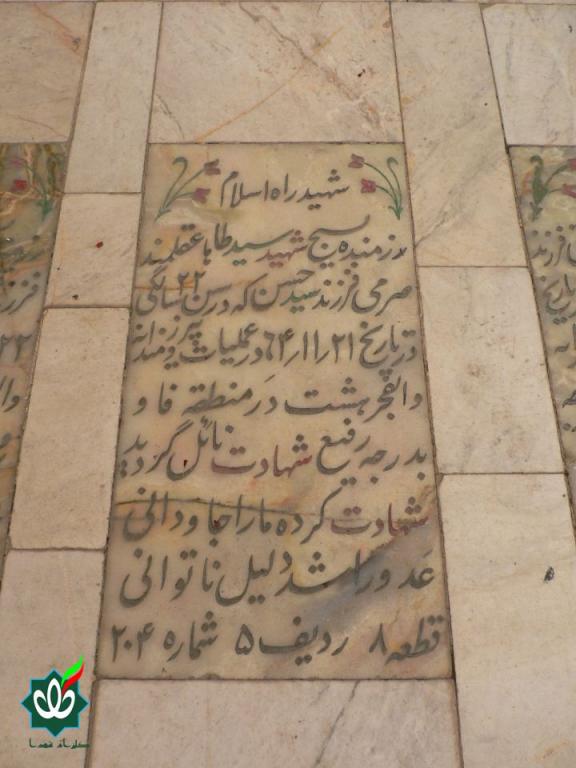 شهید راه اسلام
رزمنده بسیج شهید سید طابا عقلمند
صرمی فرزند سید حسن که در سن ۲۲ سالگی
در تاریخ ۶۴٫۱۱٫۲۱ در عملیات پیروزمندانه
والفجر هشت در منطقه فاو
بدرجه رفیع شهادت نائل گردید
شهادت کرده ما را جاودانی
عدو را شد دلیل ناتوانی
قطعه ۸ ردیف ۵ شماره ۲۰۴